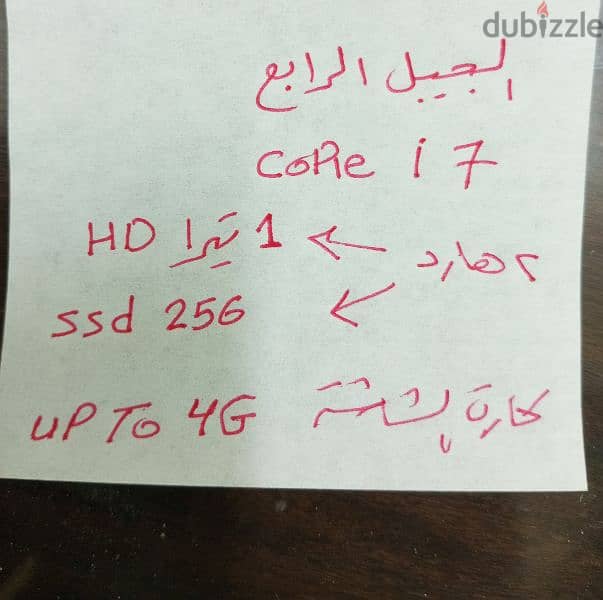 dubizzle
الجيل الرابع
CoRe i 7
٢ هارد
1 تيرا HD
ssd 256
كارت شاشة UP To 4G